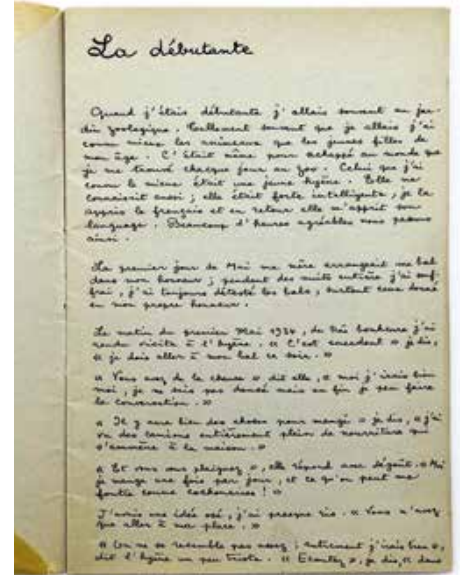 La débutante
Quand j'étais débutante j'allais souvent au jar-
din zoologique. Tellement souvent que je allais j'ai
connu mieux les animeaux que les jeunes filles de
mon âge. C'était même pour échappé au monde que
je me trouvé chacque jour au zoo. Celui que j'ai
connu le mieux était une jeune hyène. Elle me
connaissait aussi ; elle était forte intelligente, je la
appris le français et en retour elle m'apprit son
language. Beaucoup d'heures agréables nous passons
ainsi.
Le premier jour de Mai ma mère arrangeait un bal
dans mon honneur ; pendent des nuits entière j'ai souf-
frai, j'ai toujours détesté les bals, surtout ceux donné
en mon propre honneur.
Le matin du premier Mai 1934, de très bonheure j'ai
rendu visite à l'hyène. « C'est emmerdent » je dis,
« je dois aller à mon bal ce soir. »
« Vous avez de la chance » dit elle, « moi j'irais bien
moi, je ne sais pas dansé mais en fin je peu faire
la conversation. »
« Il y aura bien des choses pour mangé » je dis, « j'ai
vu des camions entièrement plein de nourriture qui
s'ammène à la maison. »
« Et vous vous plaignez », elle répond avec dégoût. « Moi
je mange une fois par jour, et ce qu'on peut me
foutre comme cochoneries ! »
J'avais une idée osé, j'ai presque ris. « Vous n'avez
que aller à ma place. »
« On ne se resemble pas assez ; autrement j'irais bien »,
dit l'hyène un peu triste. « Ecoutez », je dis, « dans